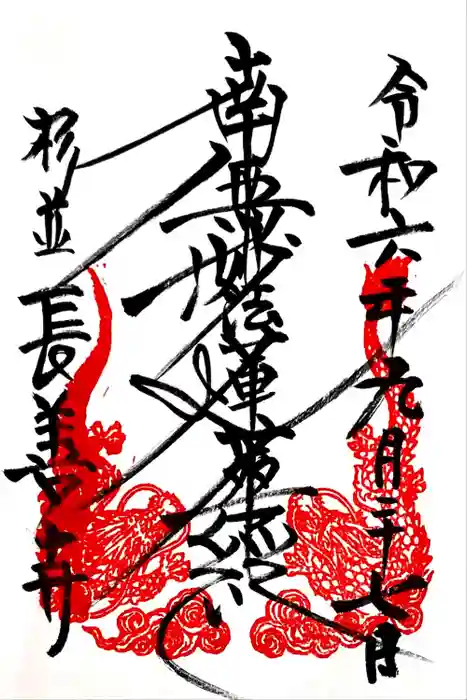 令和六年九月二十七日
南無妙法蓮華経
杉並 長善寺